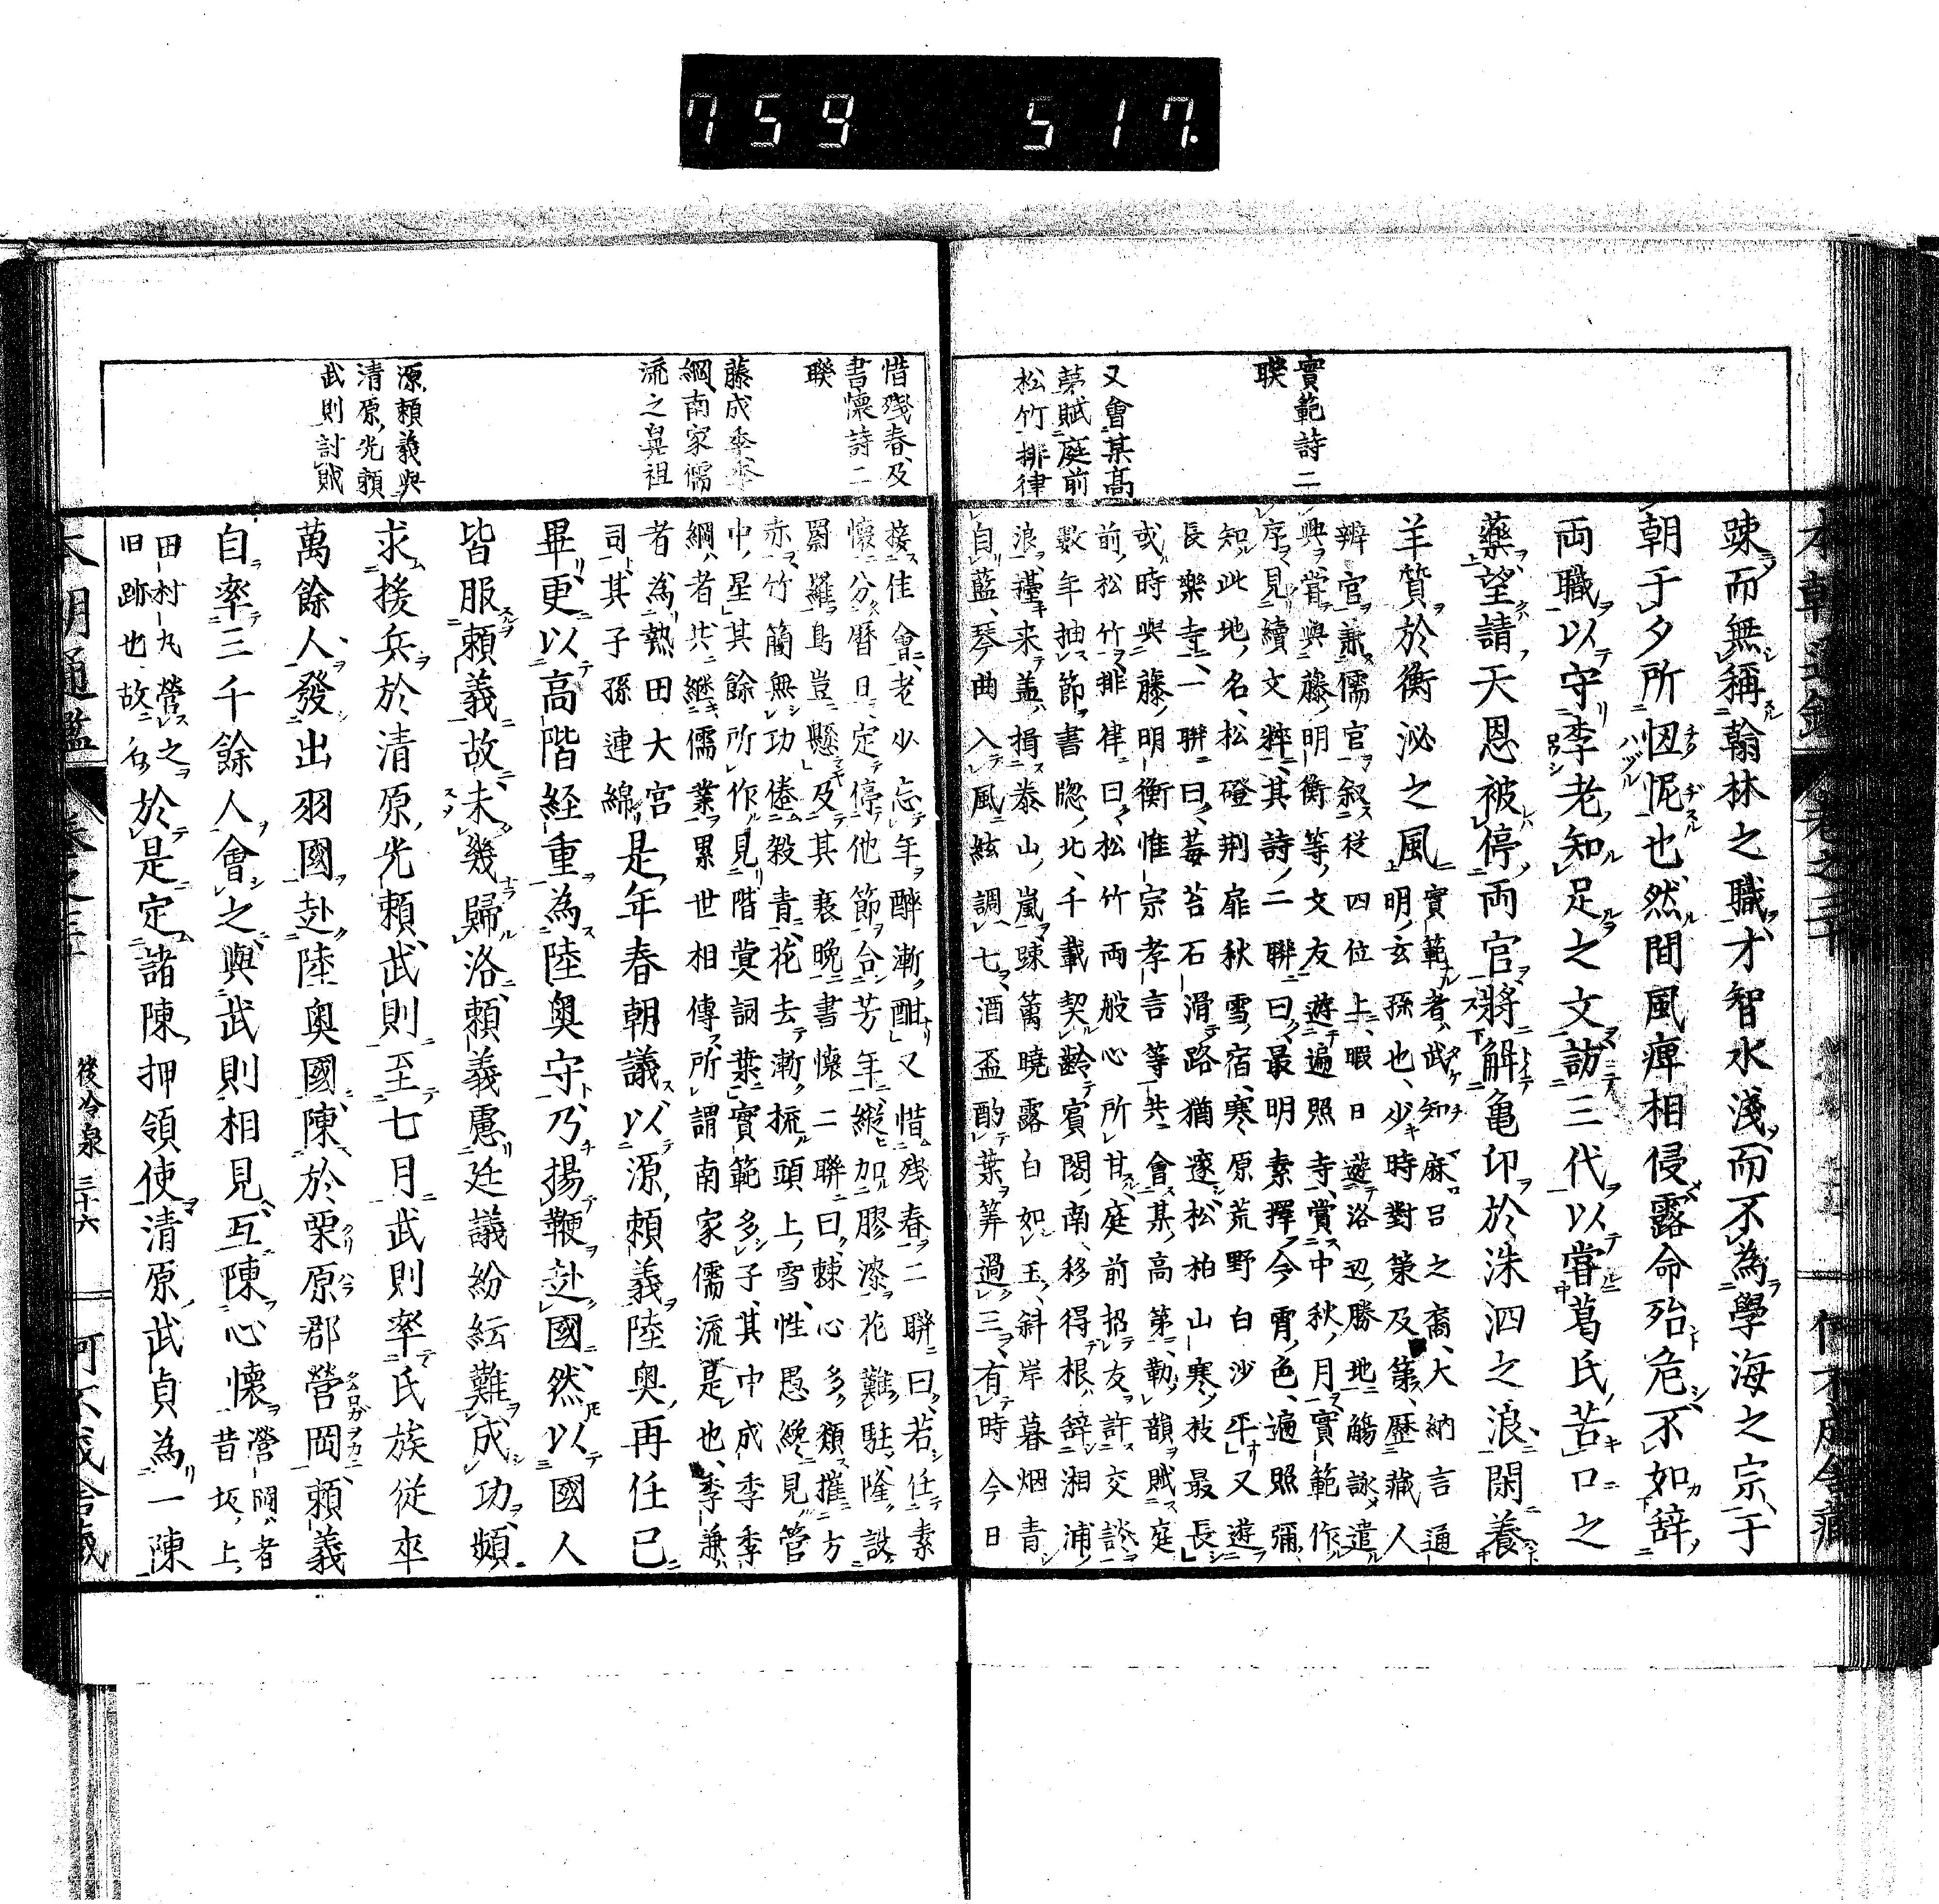 759 517.
實範詩二
聯
又會某高
第賦庭前
松竹排律
踈而無稱翰林之職才智水淺而不為學海之宗于
朝于夕所忸怩也然間風痺相侵露命殆危不如辞
両職以守李老知足之文訪三代以嘗葛氏苦口之
藥望請天恩被停両官將解亀印於洙泗之浪閑養
羊質於衡泌之風
實範者武知麻呂之裔大納言通
明玄孫也少時對策及第歴藏人
辨官兼儒官叙従四位上暇日遊洛辺勝地觴詠遣
興嘗與藤明衡等文友遊遍照寺賞中秋月實範作
序見續文粹其詩二聯曰最明素擇今霄色遍照彌
知此地名松磴荆扉秋雪宿寒原荒野白沙平又遊
長樂寺一聯曰莓苔石滑路猶邃松柏山寒枝最長
或時與藤明衡惟宗孝言等共會某高第勒韻賦庭
前松竹排律曰松竹両般心所甘庭前招友許交談
數年抽節書牎北千載契齡賓閣南移得根辞湘浦
浪種来盖揖泰山嵐踈萬曉露白如玉斜岸暮烟青
自藍琴曲入風絃調七酒盃酌葉筭過三有時今日
惜殘春及
書懷詩二
聯
藤成季季
綱南家儒
流之鼻祖
源頼義與
清原光頼
武則討賊
接佳會老少忘年醉漸酣又惜殘春二聯曰若任素
懷分暦日定停他節合芳年縱加膠漆花難駐隆設
罻羅鳥豈懸及其衰晩書懷二聯曰棘心多類摧方
赤竹簡無功倦殺青花去漸梳頭上雪性愚纔見管
中星其餘所作見階蓂詞葉實範多子其中成季季
綱者共継儒業累世相傳所謂南家儒流是也季兼
者為熱田大宮
司其子孫連綿
是年春朝議以源頼義陸奥再任已
畢更以高階経重為陸奥守乃揚鞭赴國然以國人
皆服頼義故未幾歸洛頼義慮廷議紛紜難成功頻
求援兵於清原光頼武則至七月武則率氏族従卒
萬餘人發出羽國赴陸奥國陳於栗原郡營岡頼義
自率三千餘人會之與武則相見互陳心懷
營岡者
昔坂上
田村丸營之
旧跡也故名
於是定諸陳押領使清原武貞為一陳
後冷泉 三十六